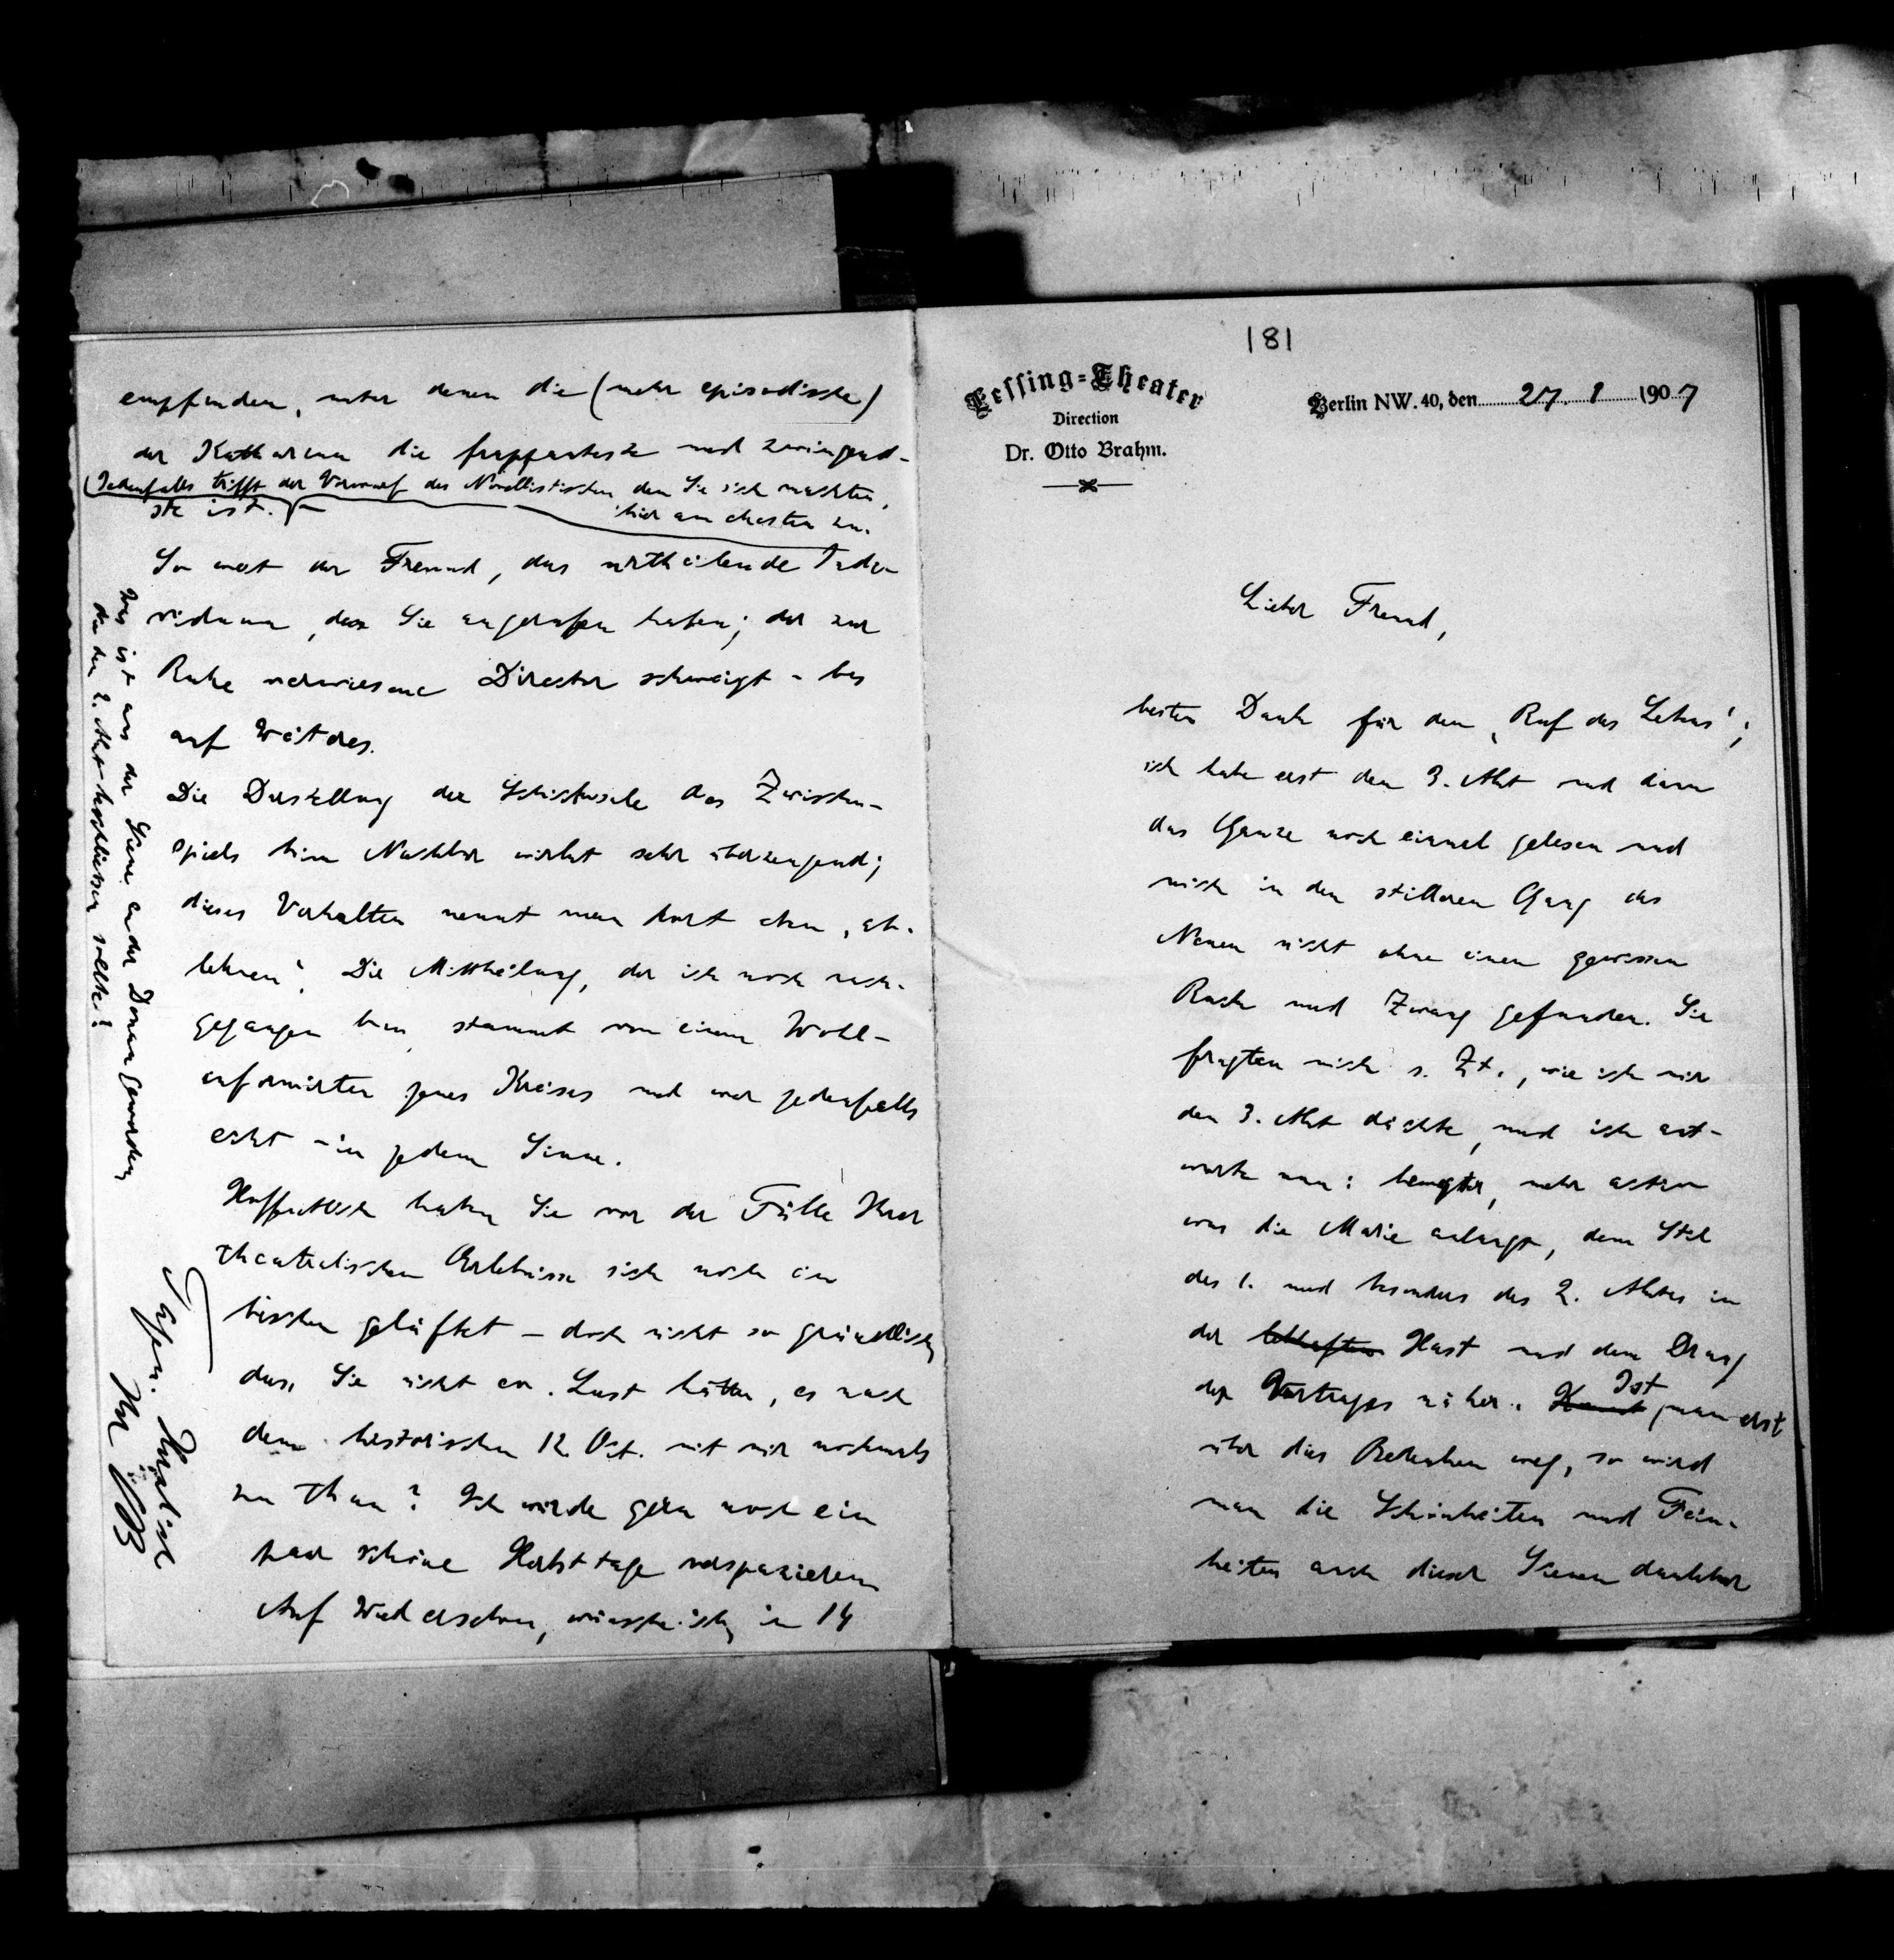 181
Lessing=Theater
Direction
Dr. Otto Brahm.
Berlin NW. 40, den 27. 1 1907
Lieber Freund,
besten Dank für den „Ruf des Lebens";
ich habe erst den 3. Akt und dann
das Ganze noch einmal gelesen und
mich in den stilleren Gang des
Neuen nicht ohne einen gewissen
Ruck und Zwang gefunden. Sie
fragten mich s. Zt., wie ich mir
den 3. Akt dächte, und ich ant-
worte nun: bewegter, mehr activ
was die Marie anlangt, dem Stil
des 1. und besonders des 2. Aktes in
der lebhaften Hast und dem Drang
des Vortrages näher. Ist man erst
über dies Bedenken weg, so wird
man die Schönheiten und Fein-
heiten auch dieser Scenen dankbar
empfinden, unter denen die (mehr episodische)
der Katharina die frappanteste und zwingend-
ste ist. (Jedenfalls trifft der Vorwurf des Novellistischen den Sie sich machten,
hier am ehesten zu.
So weit der Freund, das urtheilende Indi-
viduum, das Sie angerufen haben; der zur
Ruhe verwiesene Director schweigt – bis
auf Weitres.
Die Darstellung der Schicksale des Zwischen-
spiels beim Nachbar wirkt sehr überzeugend;
dieses Verhalten nennt man dort eben „ab-
lehnen". Die Mittheilung, der ich noch nach-
gegangen bin, stammt von einem Wohl-
informirten jenes Kreises und war jedenfalls
echt – in jedem Sinne.
Hoffentlich haben Sie vor der Fülle Ihrer
theatralischen Erlebnisse sich noch ein
bisschen gelüftet – doch nicht so gründlich,
dass Sie nicht ev. Lust hätten, es nach
dem historischen 12 Oct. mit mir nochmals
zu thun? Ich würde gern noch ein
paar schöne Herbsttage verspazieren
Auf Wiedersehen, wünsche ich, in 14
Tagen. Herzlich
Ihr OB
Was ist aus der Scene an der Donau geworden,
die den 2. Akt beschliessen sollte?